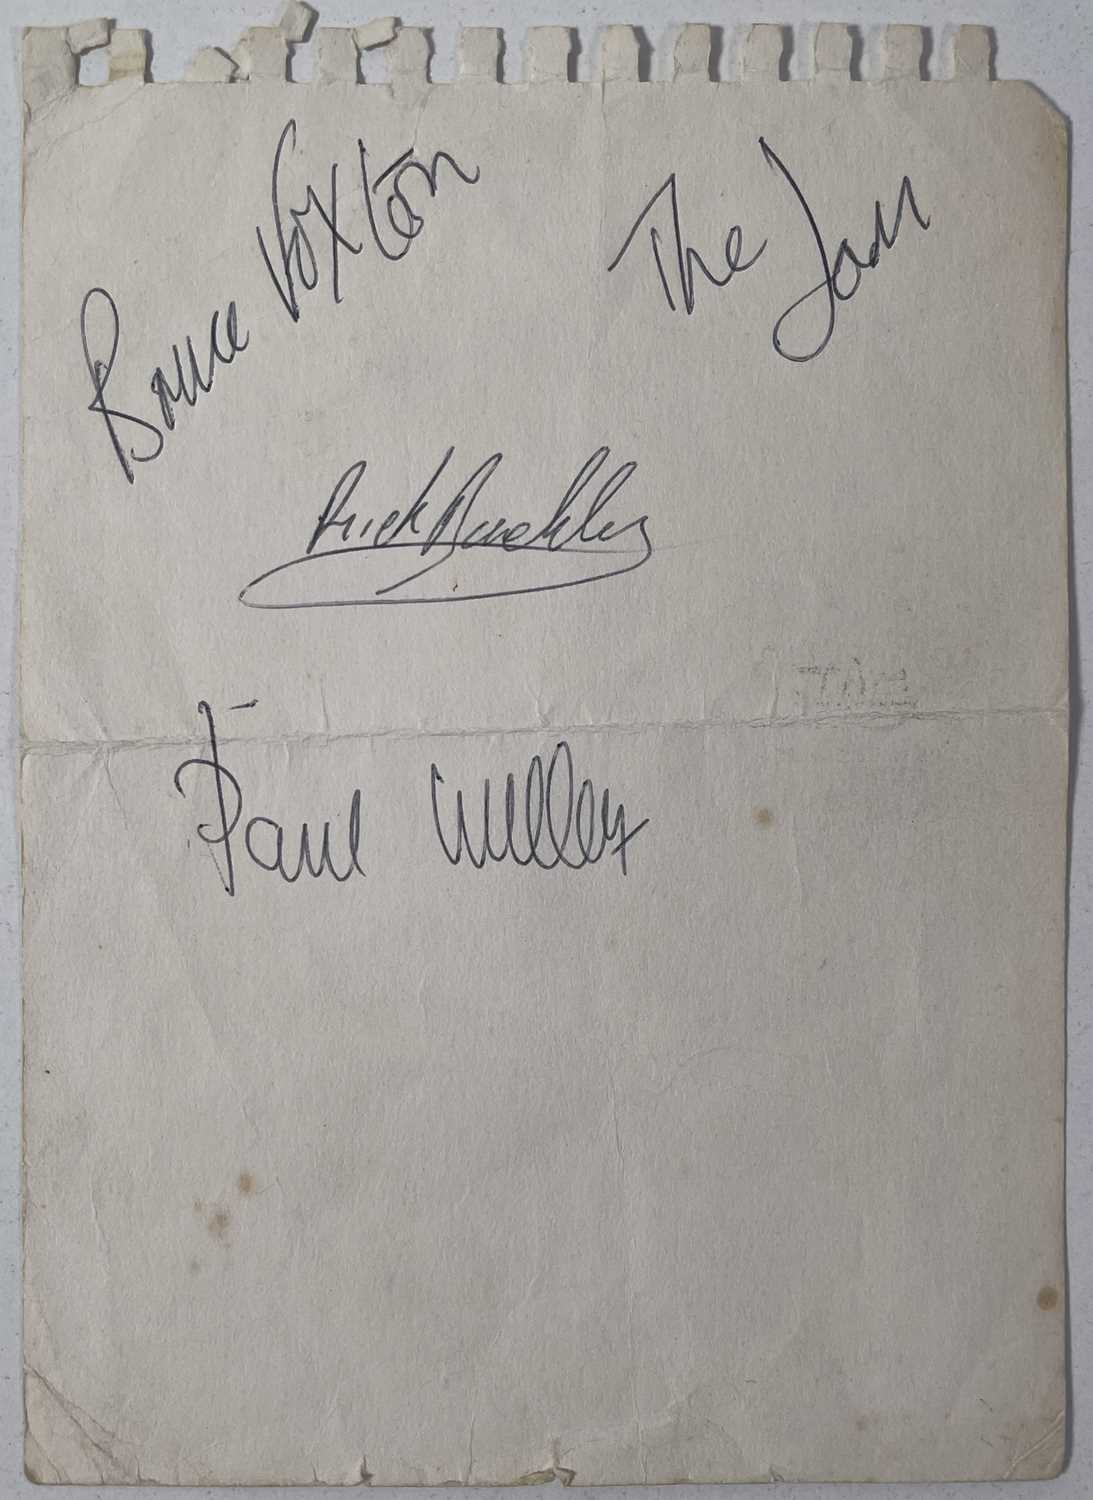 Bruce Foxton
The Jam
Rick Buckler
Paul Weller